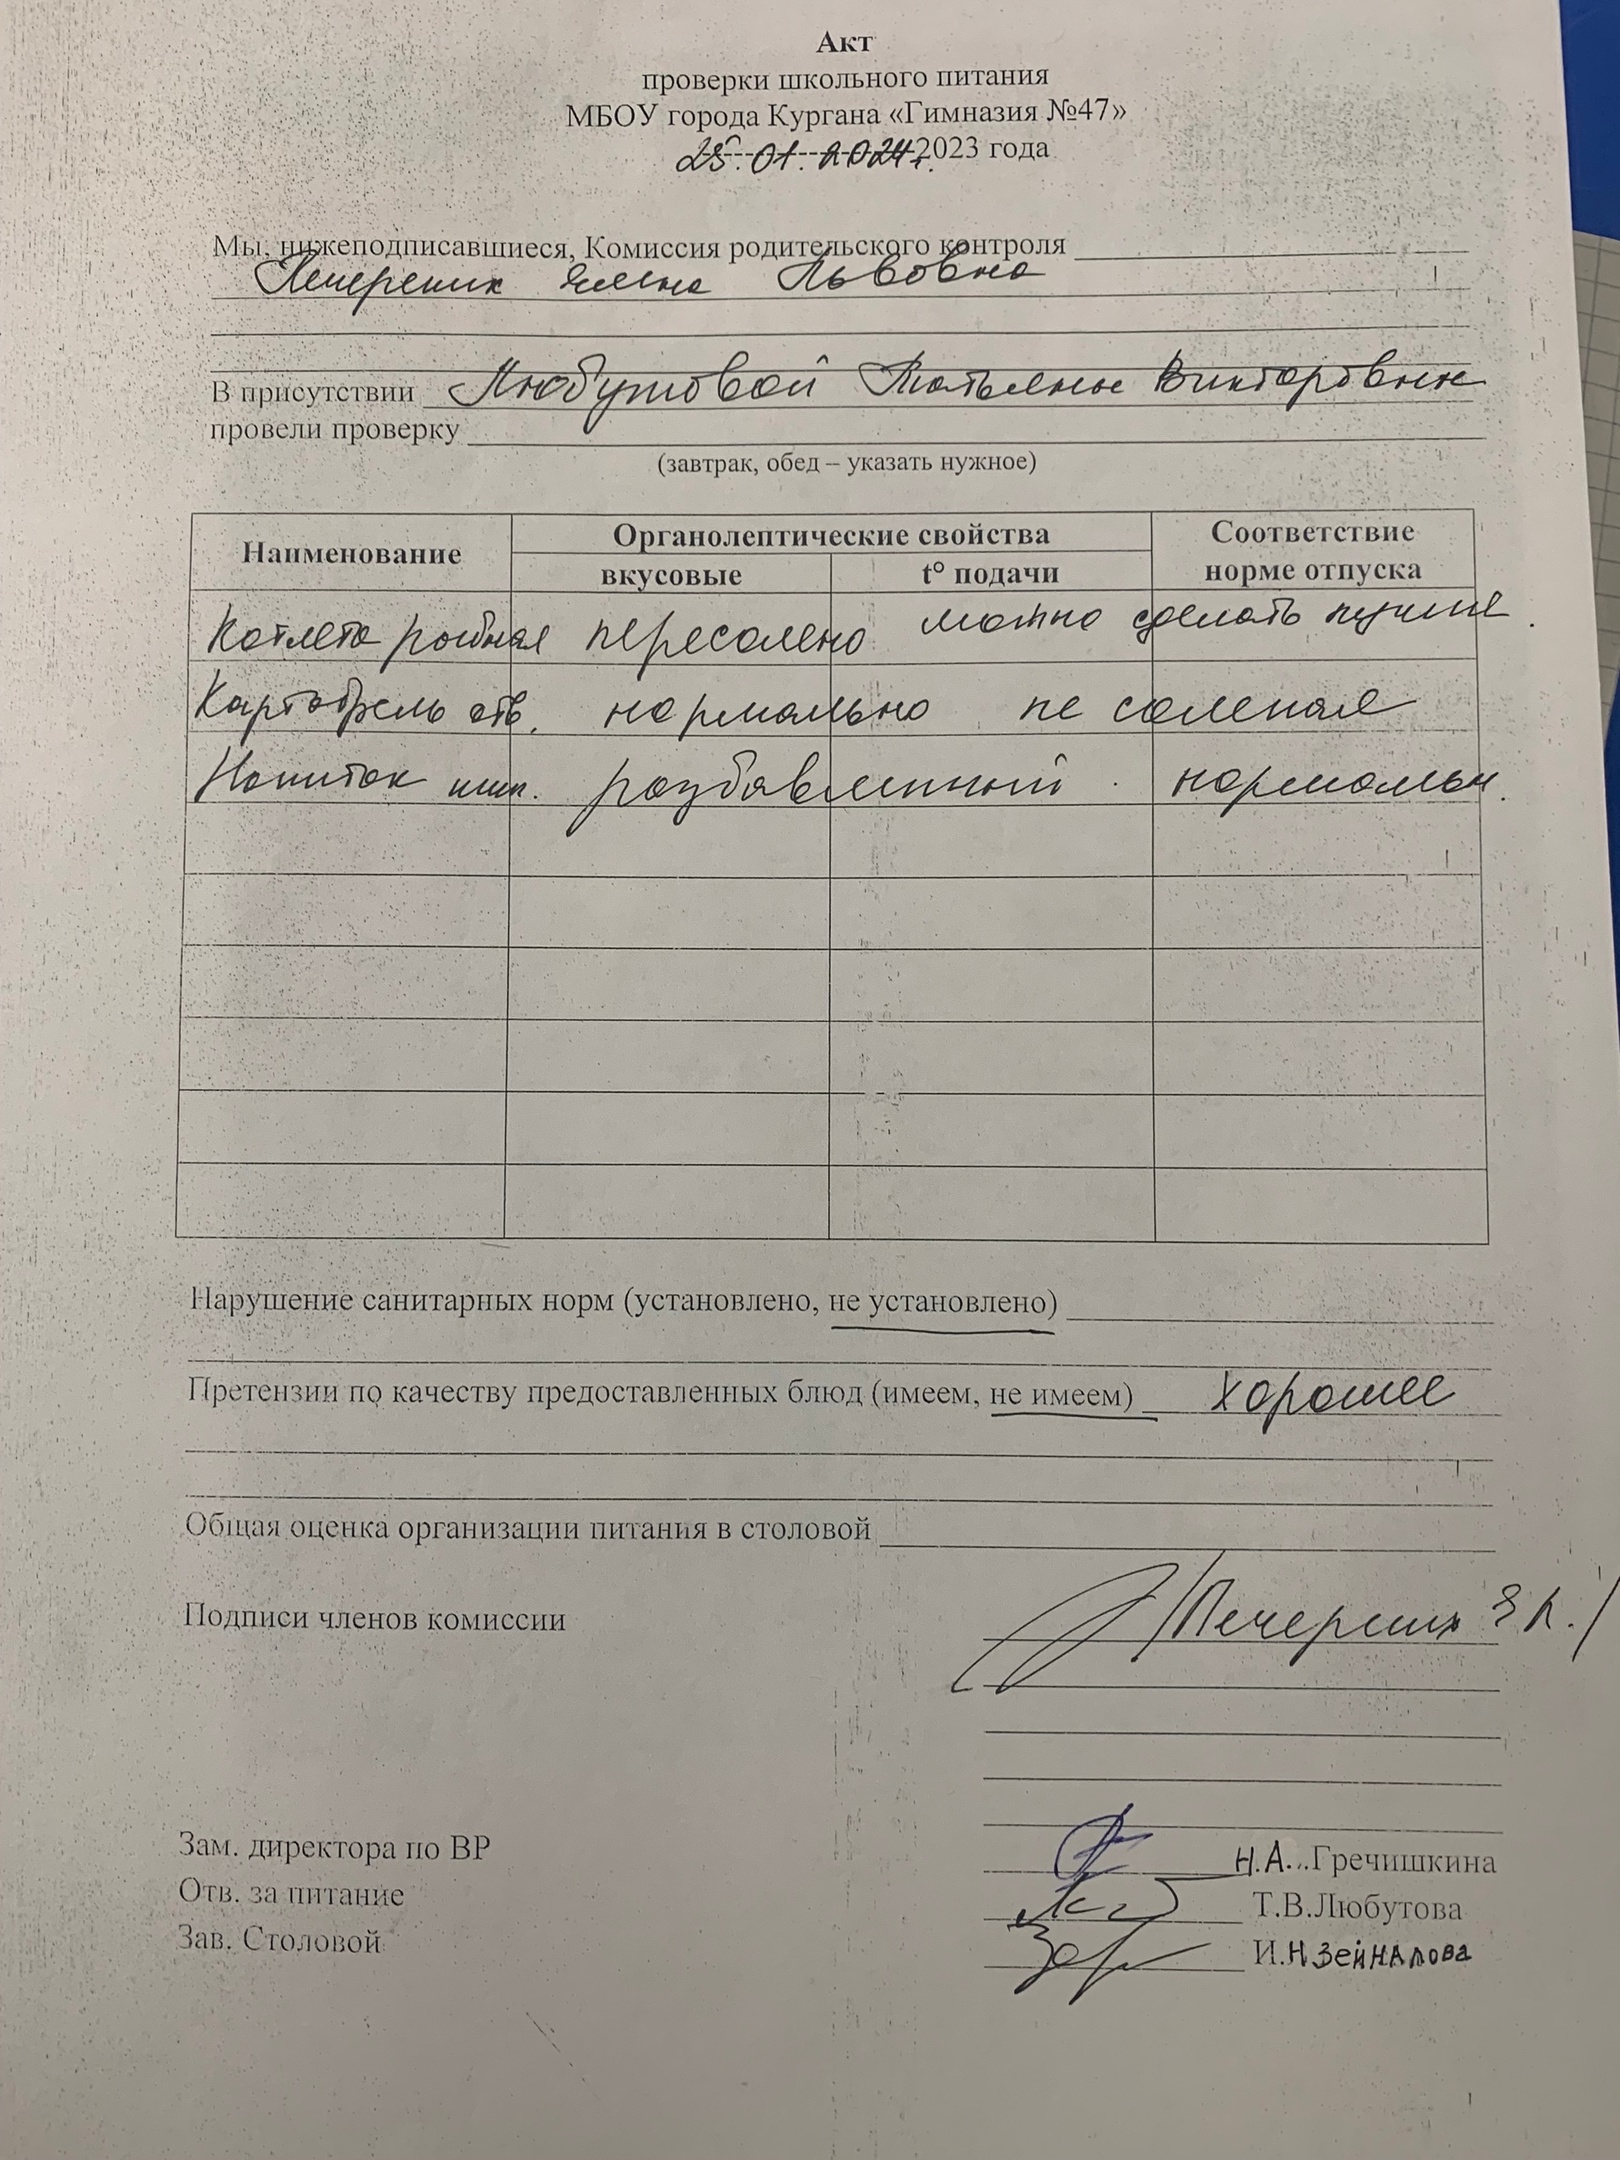 Акт
проверки школьного питания
МБОУ города Кургана «Гимназия №47»
25.01.2024г. 2023 года
Мы, нижеподписавшиеся, Комиссия родительского контроля
Елена Львовна
В присутствии Любутовой Татьяны Викторовны
провели проверку
(завтрак, обед – указать нужное)
Наименование Органолептические свойства Соответствие норме отпуска
вкусовые t° подачи
Котлета рыбная пересолено можно сделать лучше.
Картофель отв. нормально не соленая
Напиток разбавленный нормальн.
Нарушение санитарных норм (установлено, не установлено)
Претензии по качеству предоставленных блюд (имеем, не имеем) хорошее
Общая оценка организации питания в столовой
Подписи членов комиссии
Зам. директора по ВР Н.А. Гречишкина
Отв. за питание Т.В.Любутова
Зав. Столовой И.Н Зейналова